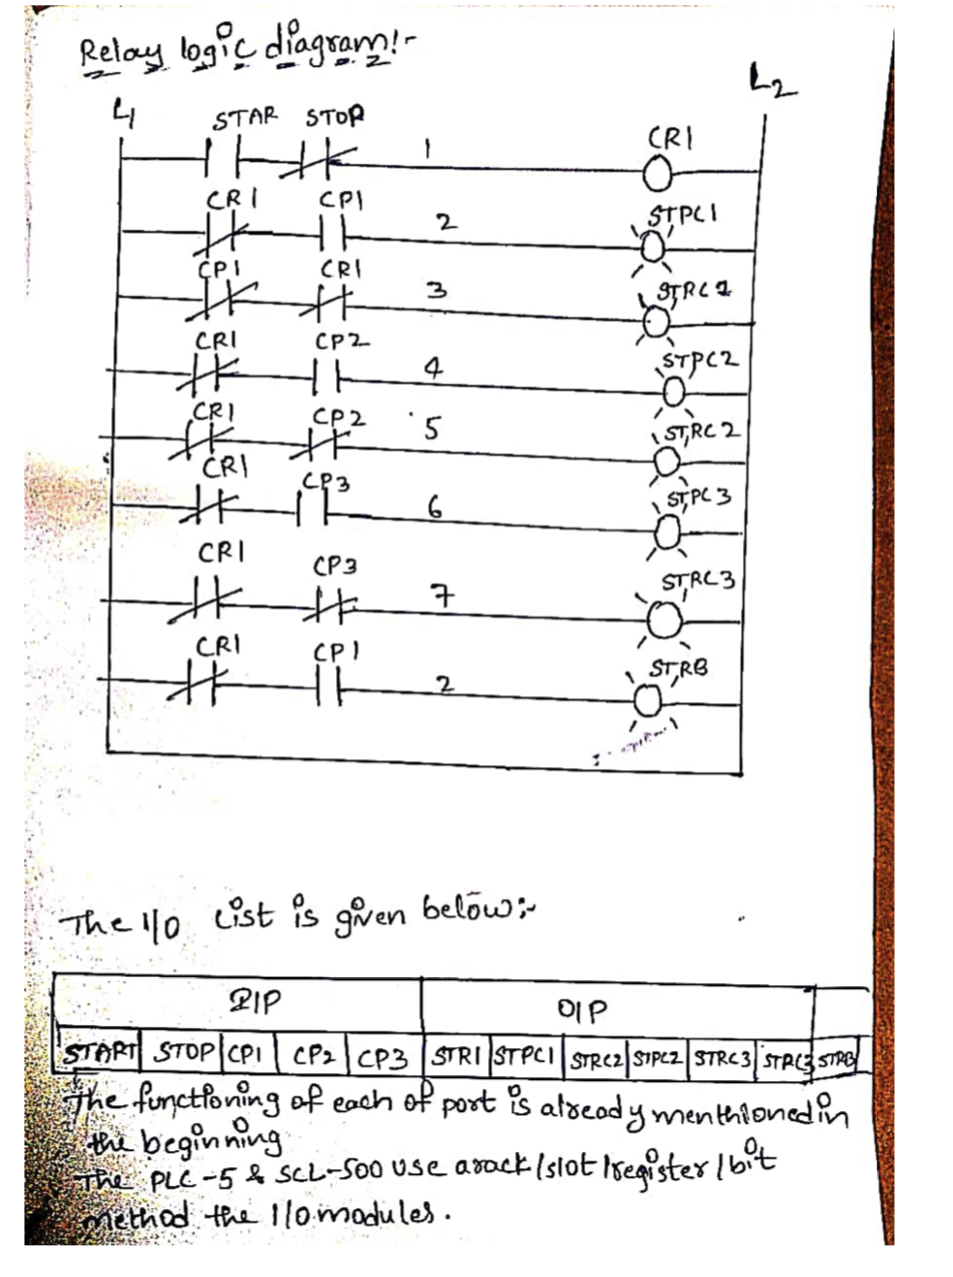 Relay logic diagram:-
L1
L2
STAR STOP 1 CR1
CR1 CP1 2 STPC1
CP1 CR1 3 STRC1
CR1 CP2 4 STPC2
CR1 CP2 5 STRC2
CR1 CP3 6 STPC3
CR1 CP3 7 STRC3
CR1 CP1 2 STRB
The I/O List is given below:-
I/P O/P
START STOP CP1 CP2 CP3 STR1 STPC1 STRC2 STPC2 STRC3 STPC3 STRB
The functioning of each of port is already menthioned in
the beginning
The PLC-5 & SCL-500 use arack/slot/register/bit
method the I/O modules.